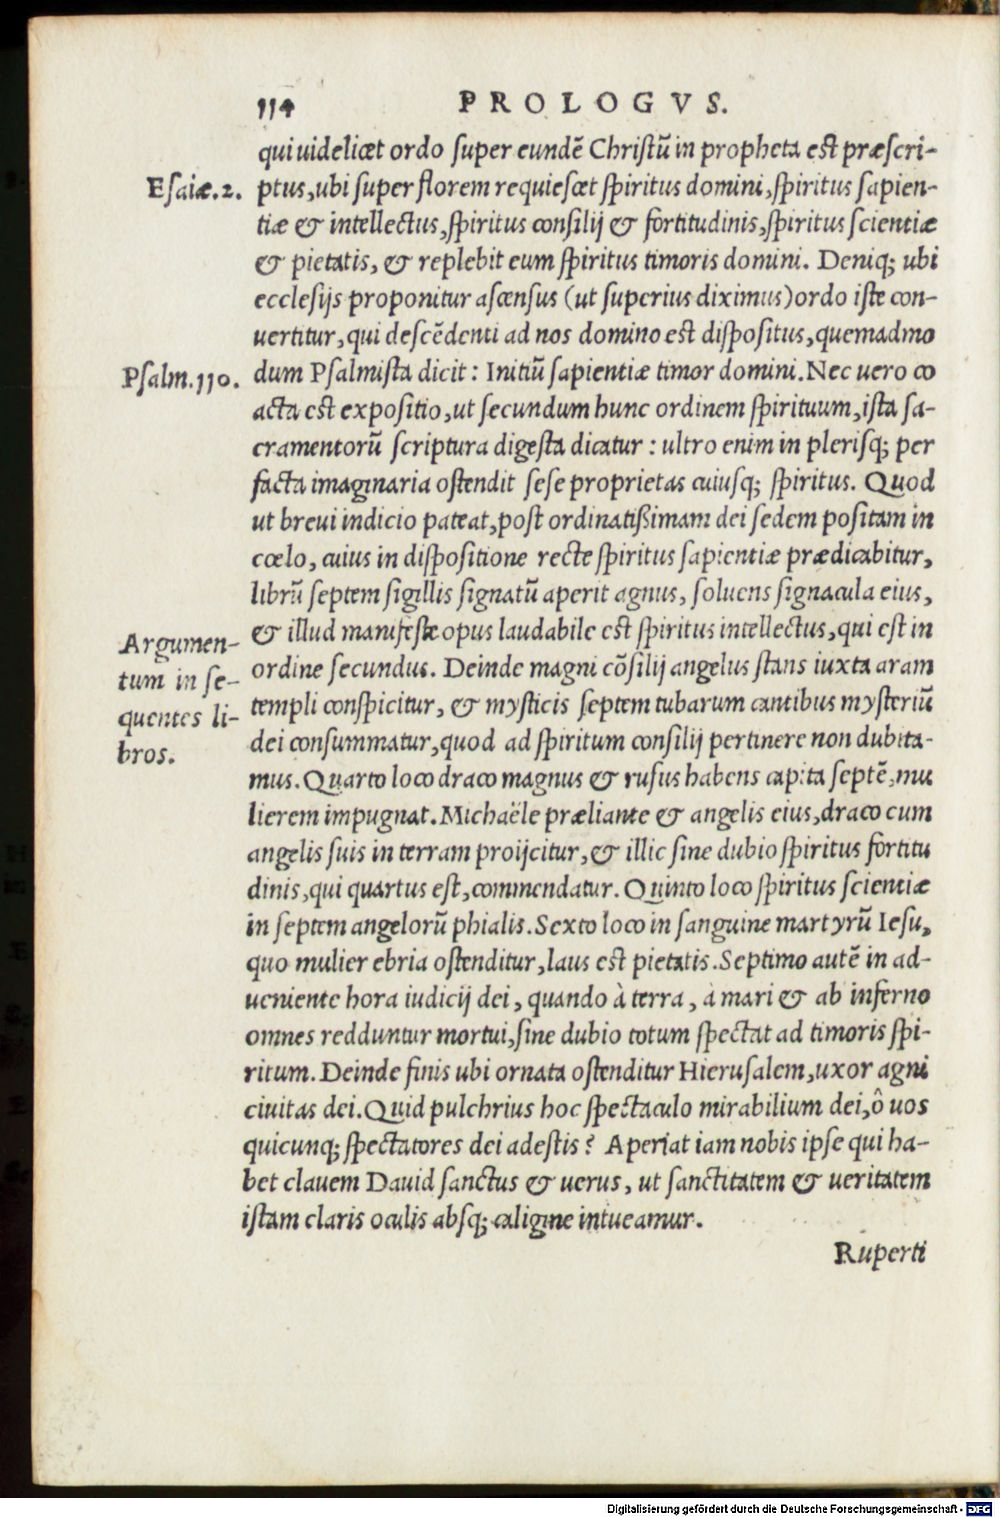 114 PROLOGVS.
qui uidelicet ordo super eundē Christū in propheta est præscri-
Esaiæ. 2. ptus, ubi super florem requiescet spiritus domini, spiritus sapien-
tiæ & intellectus, spiritus consilij & fortitudinis, spiritus scientiæ
& pietatis, & replebit eum spiritus timoris domini. Deniq; ubi
ecclesijs proponitur ascensus (ut superius diximus) ordo iste con-
uertitur, qui descēdenti ad nos domino est dispositus, quemadmo
Psalm. 110. dum Psalmista dicit: Initiū sapientiæ timor domini. Nec uero co
acta est expositio, ut secundum hunc ordinem spirituum, ista sa-
cramentorū scriptura digesta dicatur: ultro enim in plerisq; per
facta imaginaria ostendit sese proprietas cuiusq; spiritus. Quod
ut breui indicio pateat, post ordinatißimam dei sedem positam in
cœlo, cuius in dispositione recte spiritus sapientiæ prædicabitur,
librū septem sigillis signatū aperit agnus, soluens signacula eius,
Argumen- & illud manifestæ opus laudabile est spiritus intellectus, qui est in
tum in se- ordine secundus. Deinde magni cōsilij angelus stans iuxta aram
quentes li- templi conspicitur, & mysticis septem tubarum cantibus mysteriū
bros. dei consummatur, quod ad spiritum consilij pertinere non dubita-
mus. Quarto loco draco magnus & rufus habens capita septē, mu
lierem impugnat. Michaële præliante & angelis eius, draco cum
angelis suis in terram proijcitur, & illic sine dubio spiritus fortitu
dinis, qui quartus est, commendatur. Quinto loco spiritus scientiæ
in septem angelorū phialis. Sexto loco in sanguine martyrū Iesu,
quo mulier ebria ostenditur, laus est pietatis. Septimo autē in ad-
ueniente hora iudicij dei, quando à terra, a mari & ab inferno
omnes redduntur mortui, sine dubio totum spectat ad timoris spi-
ritum. Deinde finis ubi ornata ostenditur Hierusalem, uxor agni
ciuitas dei. Quid pulchrius hoc spectaculo mirabilium dei, ô uos
quicunq; spectatores dei adestis? Aperiat iam nobis ipse qui ha-
bet clauem Dauid sanctus & uerus, ut sanctitatem & ueritatem
istam claris oculis absq; caligine intueamur.
Ruperti
Digitalisierung gefördert durch die Deutsche Forschungsgemeinschaft - DFG